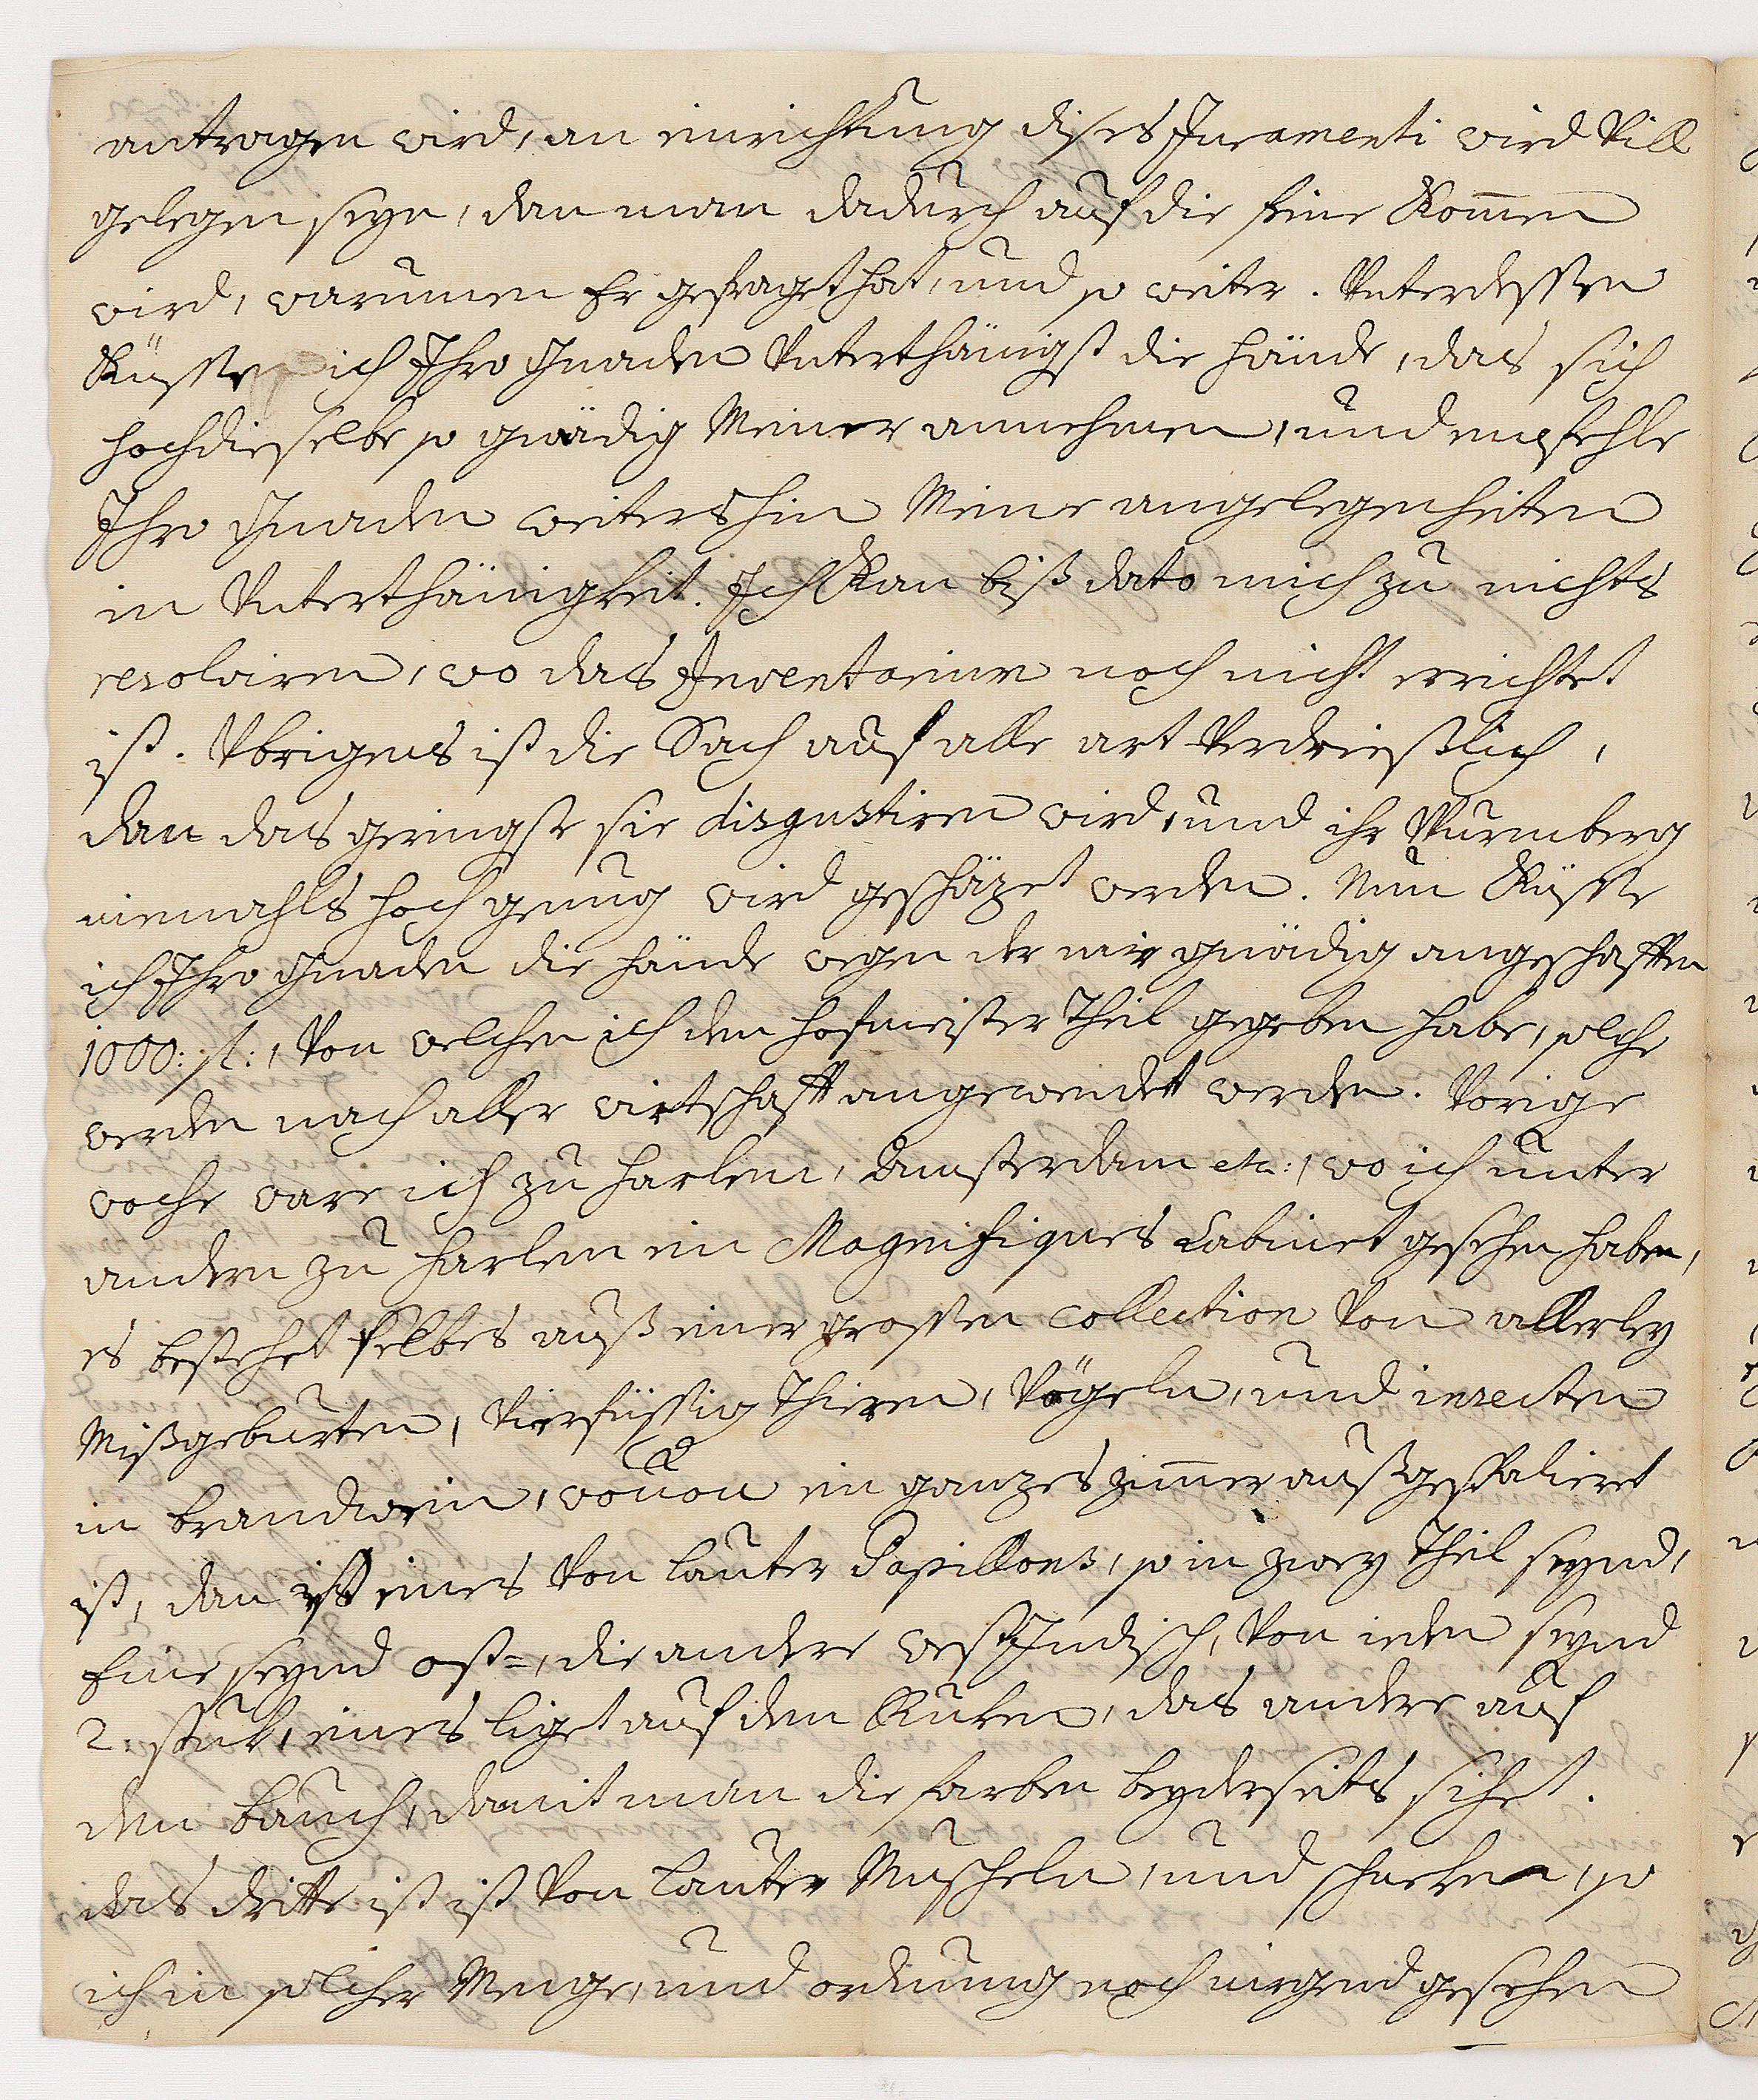 antragen wird, an einrichtung dises Juramenti wird Vill
gelegen seyn, dan man dadurch auf die seine Kom̄en
wird, warumen Er gefraget hat, und so weiter. Unterdessen
Küsse ich Ihro Gnaden Unterthänigst die Hände, das sich
hochdieselbe so gnädig Meiner annehmen, und empfehle
Ihro Gnaden weitershin Meine angelegenheiten
in Unterthänigkeit. Ich Kan biß dato mich zu nichts
resolviren, wo das Inventarium noch nicht errichtet
ist. Ubrigens ist die Sach auf alle art Verdrießlich,
dan das geringste sie disgustiren wird, und ihr Wurmberg
niemahls hoch genug wird geschäzet werden. Nun Küsse
ich Ihro Gnaden die Hände wegen der mir gnädig angeschafften
1000: fl:, Von welchen ich dem Hofmeister Theil gegeben habe, solche
werden nach aller wirtschafft angewendet werden. Vorige
woche ware ich zu Harlem, Amsterdam etc:, wo ich unter
andern zu Harlem ein Magnifiques Cabinet gesehen haben,
es bestehet selbtes auß einer grossen Collection Von allerley
Mißgeburten, Vierfüssig Thieren, Vögeln, und insecten
in brandwein, wovon ein ganzes zim̄er außgespalieret
ist, dan ist eines Von lauter Papillons, so in zwey Theil seynd,
Eine seynd ost=, die andere west Indisch, Von ieden seynd
2: stuk, eines liget auf den Ruken, das andere auf
den bauch, damit man die farben beyderseits sihet.
das dritte ist ist Von lauter Muscheln, und schneken, so
ich in solcher Menge, und ordnung noch nirgend gesehen